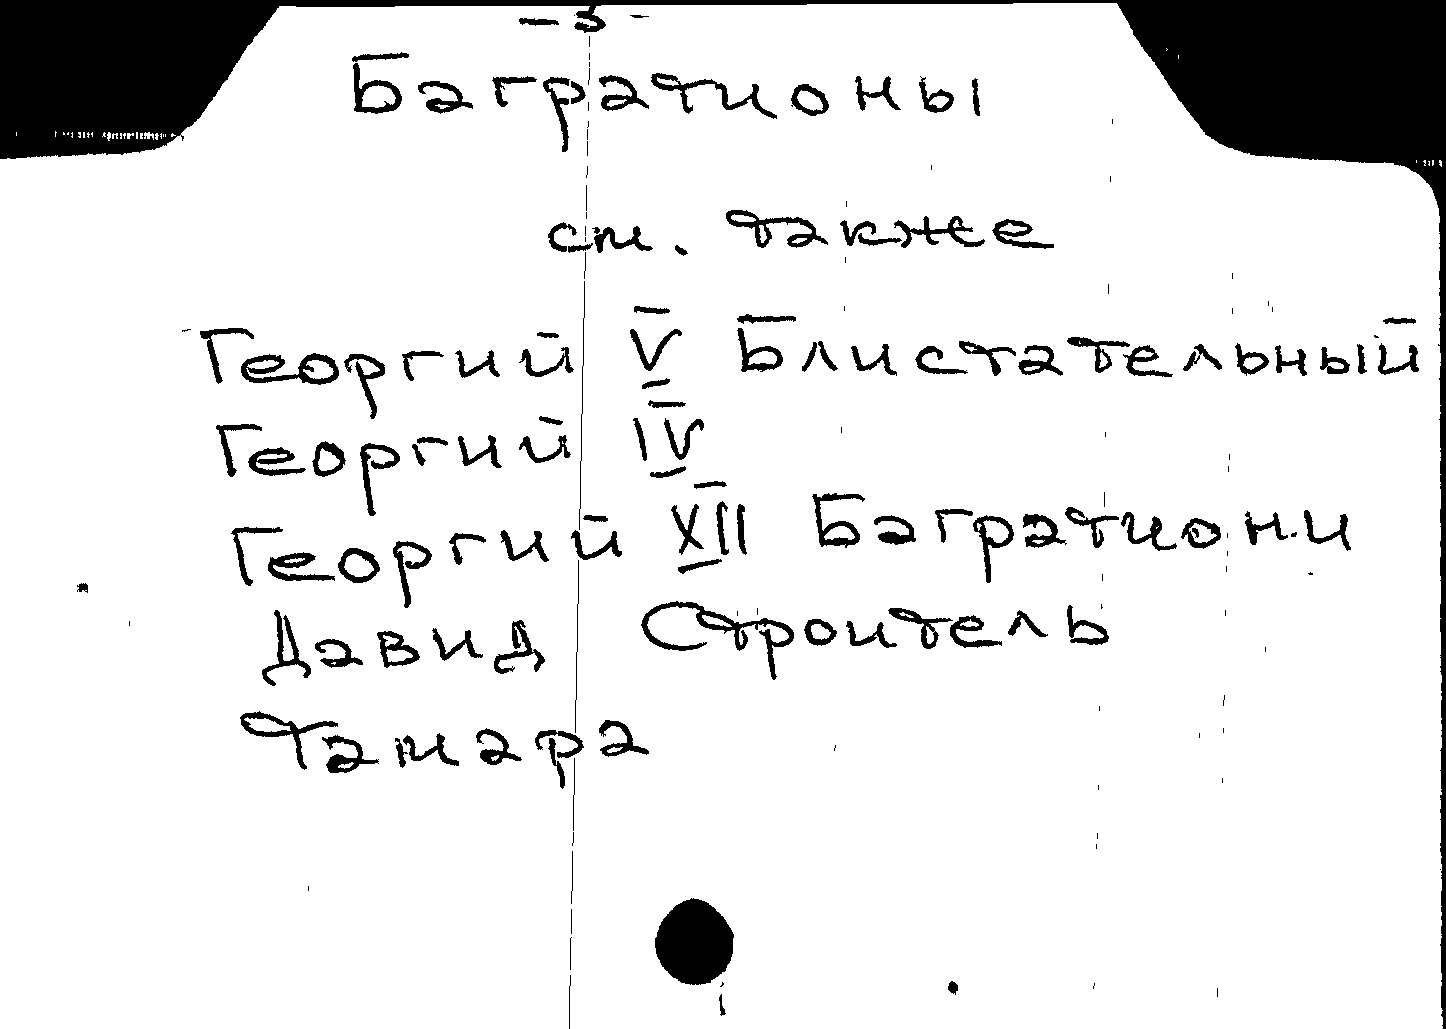 - 3 -
Багратионы
см. также
Георгий V Блистательный
Георгий IV
Георгий XII Багратиони
Давид Строитель
Тамара